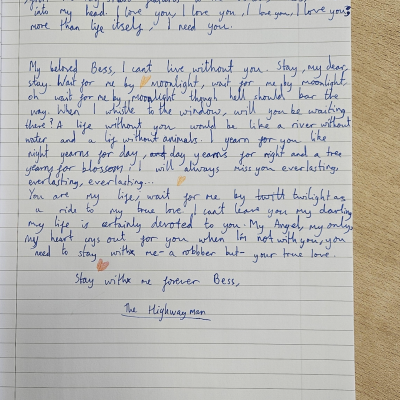 into my head. I love you, I love you, I love you, I love you
more than life itself, I need you.
My beloved Bess, I cant live without you. Stay, my dear,
stay. Wait for me by moonlight, wait for me by moonlight.
oh wait for me by moonlight though hell should bar the
way. When I whistle to the window, will you be waiting
there? A life without you would be like a river without
water and a life without animals. I yearn for you like
night yearns for day, and day yearns for night and a tree
yearns for blossom. I will always miss you everlasting,
everlasting, everlasting...
You are my life, wait for me by twilight as
a ride to my true love. I can't leave you my darling
my life is certainly devoted to you. My Angel, my only,
my heart crys out for you when I'm not with you, you
need to stay with me - a robber but - your true love.
Stay with me forever Bess,
The Highwayman